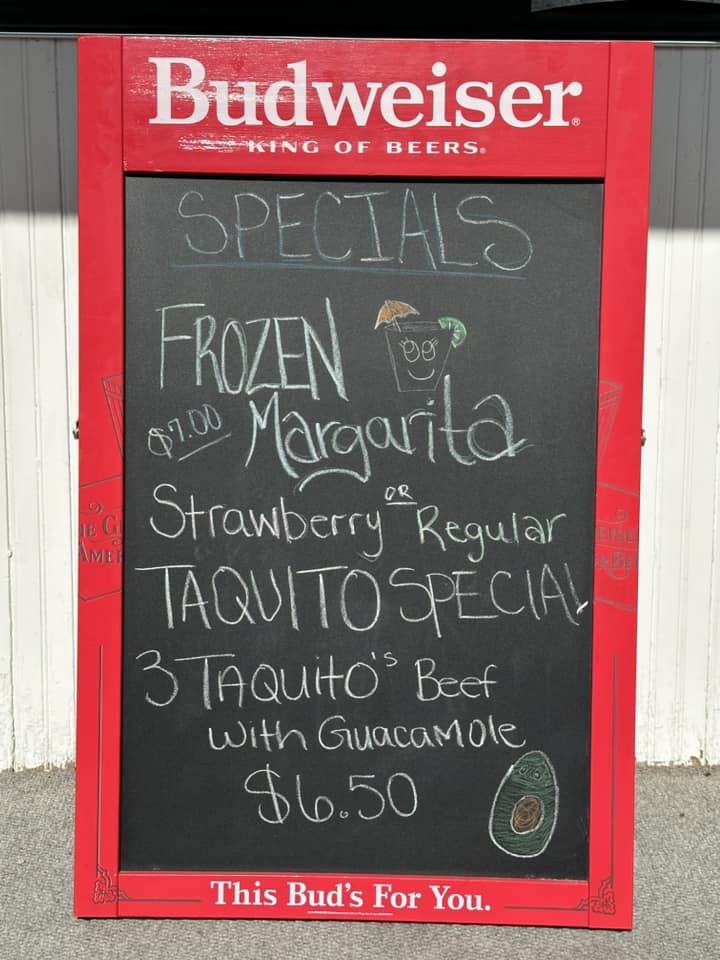 Budweiser®
KING OF BEERS®
SPECIALS
FROZEN
$7.00 Margarita
Strawberry OR Regular
TAQUITO SPECIAL
3 TAQUITO'S Beef
with GUACAMOLE
$6.50
This Bud's For You.